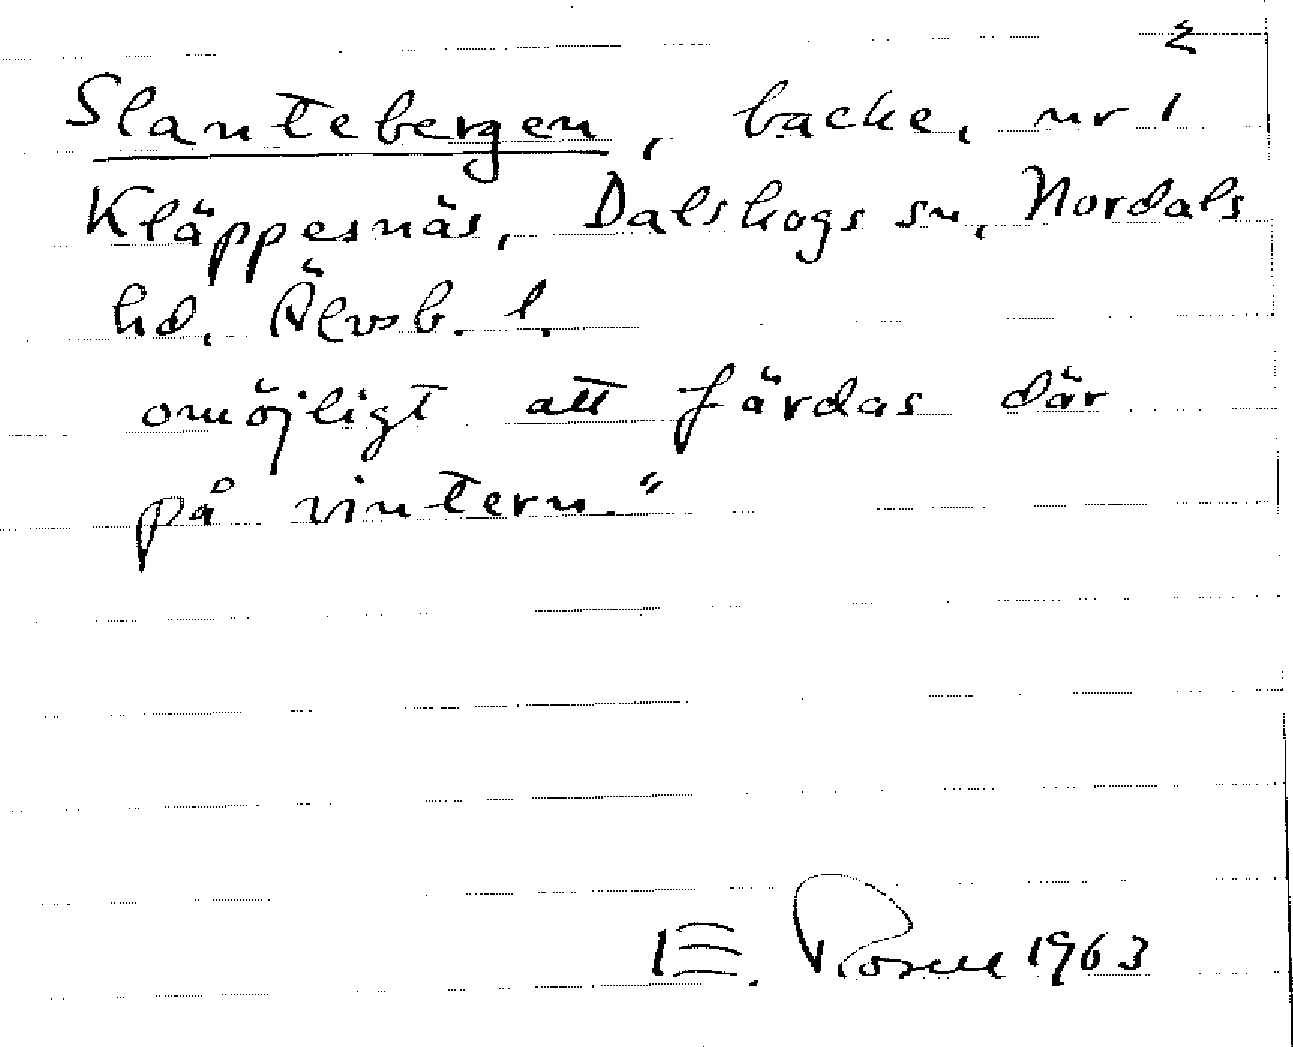 2
Slantebergen, backe, nr 1
Kläppesnäs, Dalskogs sn, Nordals
hd, Älvsb. l.
omöjligt att färdas där
på vintern."
E. Rosell 1963